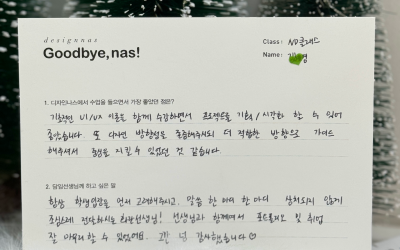 designnas
Goodbye, nas!
Class : ND클래스
Name : 경
1. 디자인나스에서 수업을 들으면서 가장 좋았던 점은?
기초적인 UI/UX 이론을 함께 수강하면서 프로젝트를 기획/시각화 할 수 있어
좋았습니다. 또 디자인 방향성을 존중해주시되 더 적합한 방향으로 가이드
해주셔서 중심을 지킬 수 있었던 것 같습니다.
2. 담임선생님께 하고 싶은 말
항상 학생입장을 먼저 고려해주시고, 말씀 한 마디 한 마디 상처되지 않게
조심스레 전달하시는 선생님! 선생님과 함께여서 포트폴리오 및 취업
잘 마무리 할 수 있었어요. 감사했습니다♡